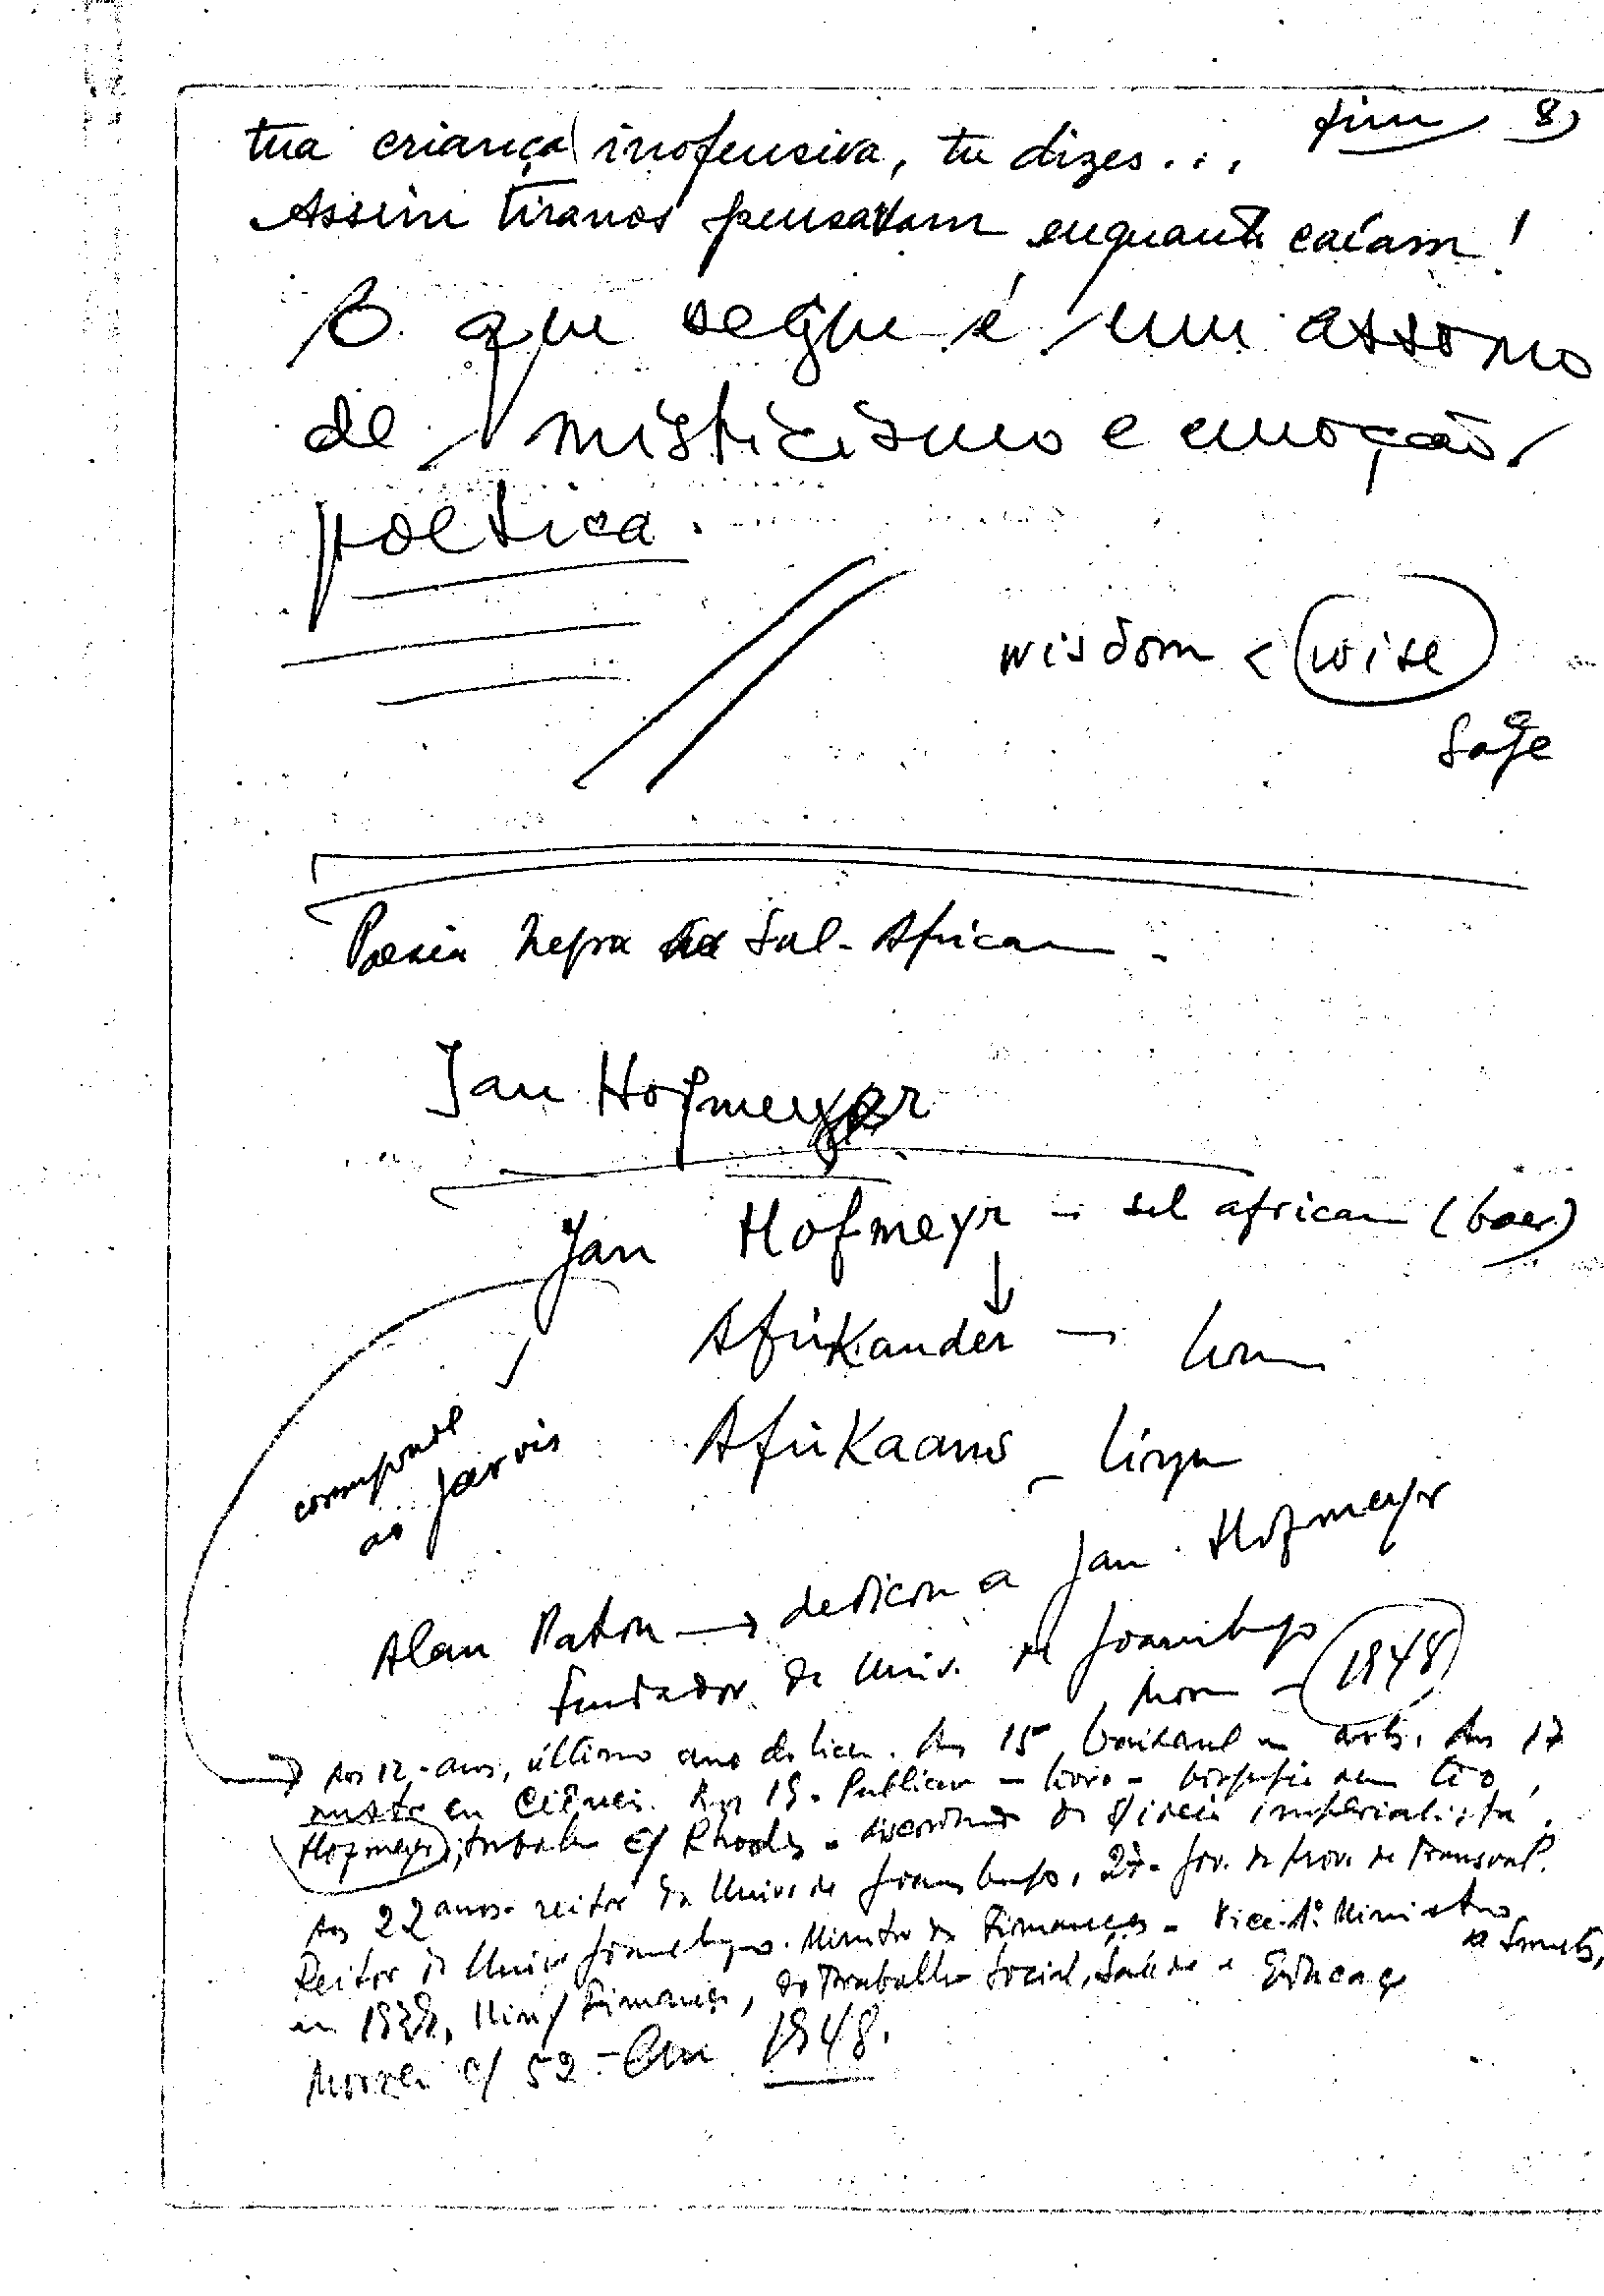 fim 8)
tua criança inofensiva, tu dizes...
Assim tiranos pensavam enquanto caíam!
O que segue é um assomo
de misticismo e emoção
poética.
wisdom < wise
sage
Poesia negra Sul-Africana -
Jan Hofmeyer
Jan Hofmeyr - sul africano (boer)
Afrikander -
Afrikaans - língua
corresponde
ao Jarvis
Alan Paton → dedicou a Jan Hofmeyr
fundador da Univ. de
morreu - 1948
Aos 12 anos, último ano do liceu. Aos 15, em arts. Aos 17
em Ciências. Aos 19. Publicou - livro - biografia seu tio,
Hofmeyr, c/ Rhodes - da ideia imperialista.
Aos 22 anos - reitor da Univ. de 27 - gov. da prov. de Transval.
Reitor da Univ. Ministro das Finanças - Vice-1º Ministro
de Smuts,
em Min/ Finanças, do Trabalho Social, Saúde e Educação
Morreu c/ 52 - Em 1948.